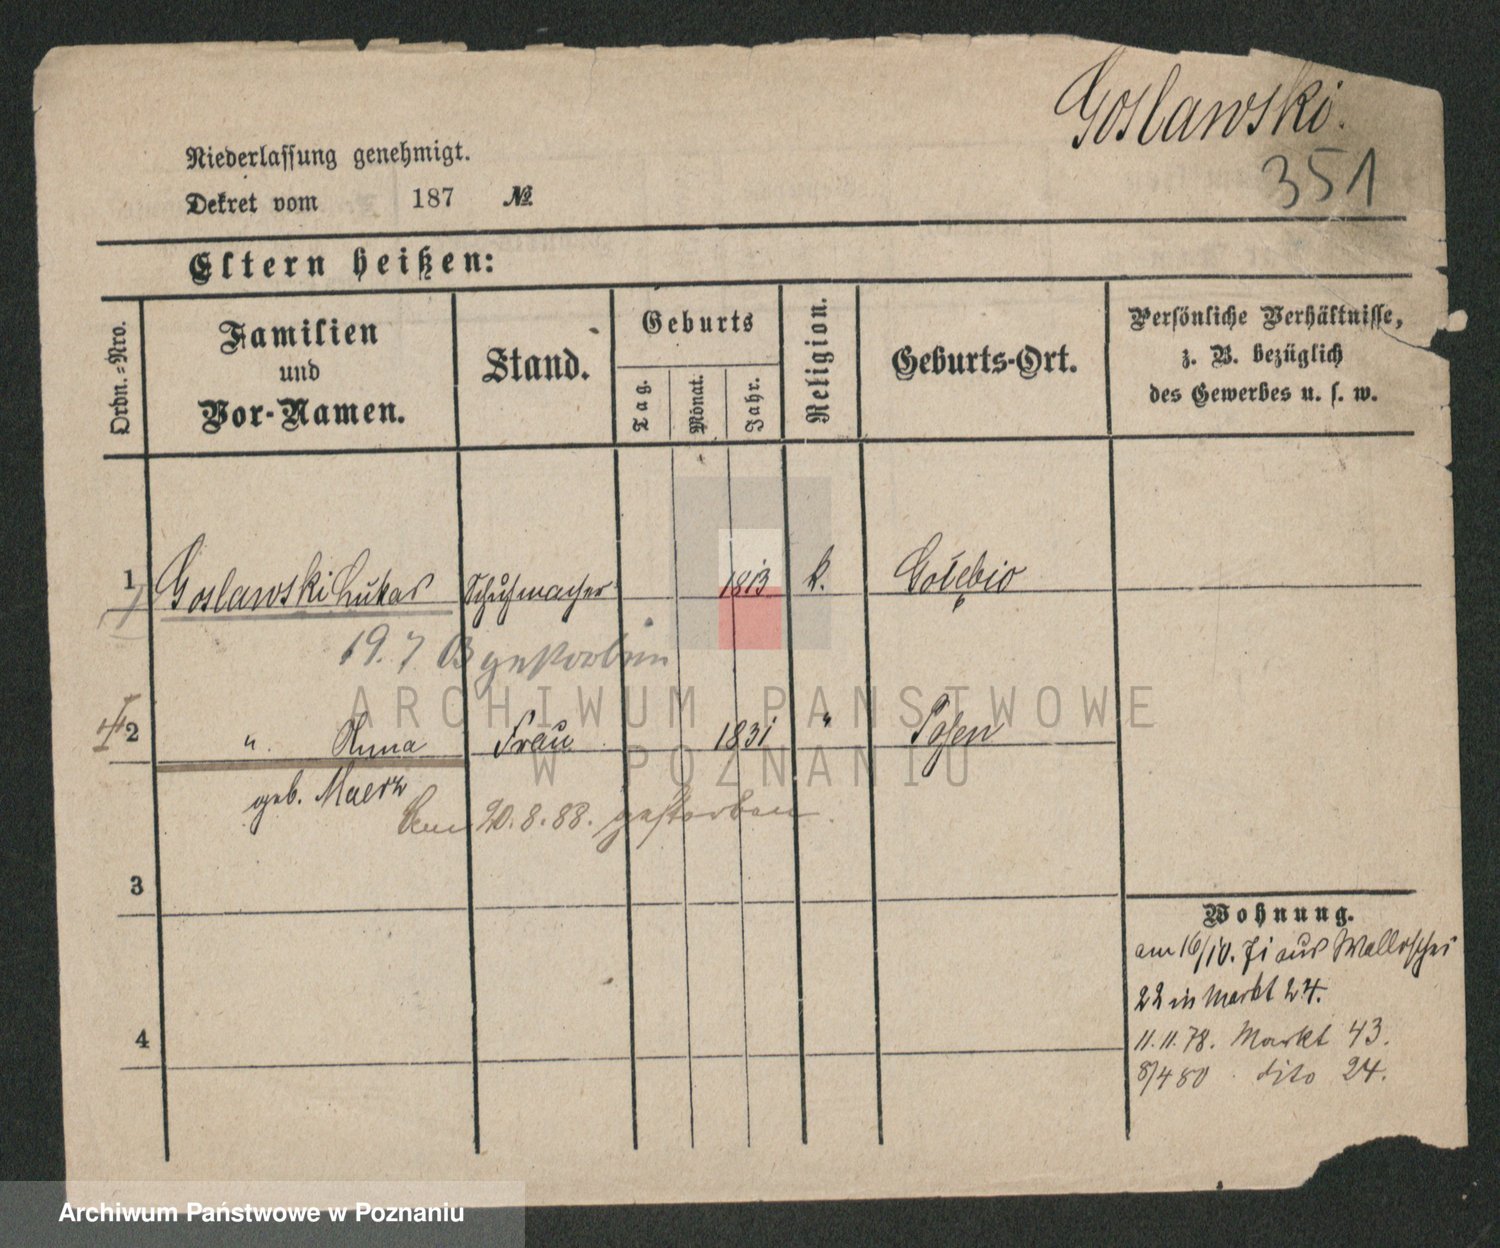 Goslawski.
351
Niederlassung genehmigt.
Dekret vom 187 №
Eltern heißen:
Ordn.-Nro.
Familien und Vor-Namen.
Stand.
Geburts
Tag.
Monat.
Jahr.
Religion.
Geburts-Ort.
Persönliche Verhältnisse,
z. B. bezüglich
des Gewerbes u. s. w.
1 Goslawski Lukas Schuhmacher 1813 k. Gołębio
19. 7 gestorben
2 " Anna Frau 1831 " Posen
geb. Maerz
Den 20.8.88. gestorben.
3
4
Wohnung.
am 16/10. 71 aus Wallischei
22 in Markt 24.
11.11.78. Markt 43.
8/4 80 dito 24.
ARCHIWUM PAŃSTWOWE
W POZNANIU
Archiwum Państwowe w Poznaniu